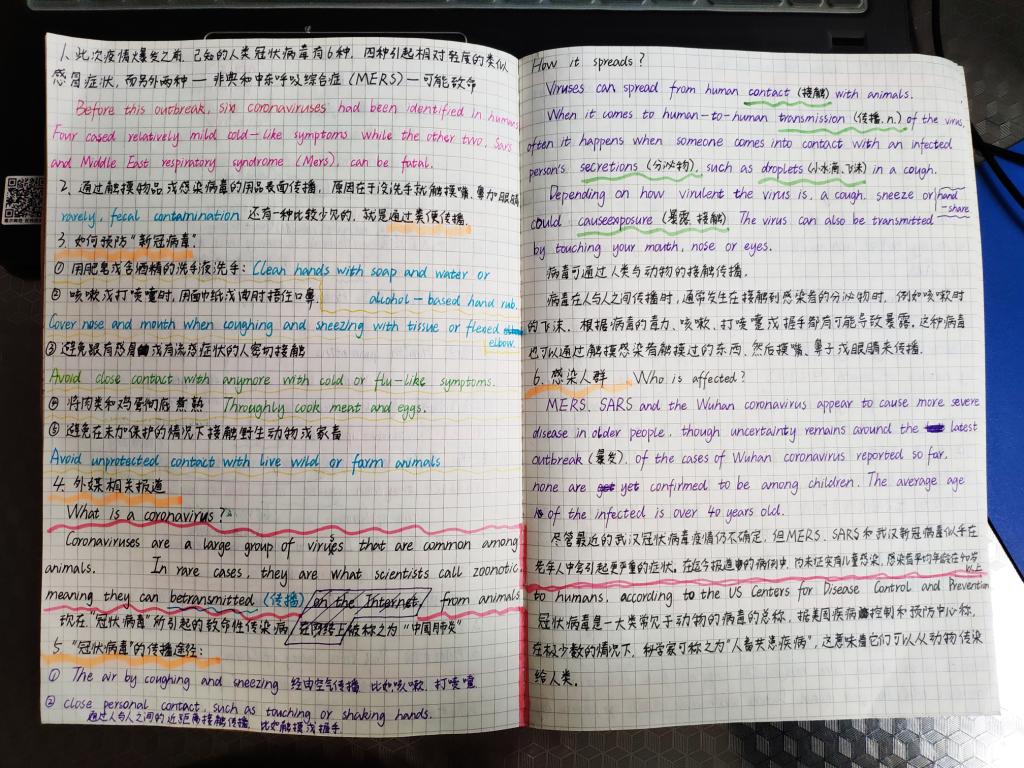 1. 此次疫情爆发之前,已知的人类冠状病毒有6种,四种引起相对轻度的类似
感冒症状,而另外两种 — 非典和中东呼吸综合症(MERS)—可能致命
Before this outbreak, six coronaviruses had been identified in humans
Four cased relatively mild cold-like symptoms while the other two, Sars
and Middle East respiratory syndrome (Mers), can be fatal.
2. 通过触摸物品或感染病毒的用品表面传播,原因在于没洗手就触摸嘴、鼻加眼睛
rarely, fecal contamination 还有一种比较少见的,就是通过粪便传播.
3. 如何预防“新冠病毒”:
① 用肥皂或含酒精的洗手液洗手: Clean hands with soap and water or
alcohol-based hand rub.
② 咳嗽或打喷嚏时,用面巾纸或曲肘捂住口鼻.
Cover nose and mouth when coughing and sneezing with tissue or flexed
elbow.
③ 避免跟有感冒或有流感症状的人密切接触
Avoid close contact with anymore with cold or flu-like symptoms.
④ 将肉类和鸡蛋彻底煮熟 Throughly cook meat and eggs.
⑤ 避免在未加保护的情况下接触野生动物或家畜
Avoid unprotected contact with live wild or farm animals
4. 外媒相关报道
What is a coronavirus?
Coronaviruses are a large group of viruses that are common among
animals. In rare cases, they are what scientists call zoonotic,
meaning they can betransmitted (传播) on the Internet from animals
现在“冠状病毒”所引起的致命性传染病,在网络上被称之为“中国肺炎”
5. “冠状病毒”的传播途径:
① The air by coughing and sneezing 经由空气传播,比如咳嗽,打喷嚏
② close personal contact, such as touching or shaking hands.
通过人与人之间的近距离接触传播,比如触摸或握手.
How it spreads?
Viruses can spread from human contact (接触) with animals.
When it comes to human-to-human transmission (传播. n.) of the virus,
often it happens when someone comes into contact with an infected
person's secretions (分泌物), such as droplets (小水滴,飞沫) in a cough.
Depending on how virulent the virus is, a cough, sneeze or hand
-shake
could causeexposure (暴露,接触) The virus can also be transmitted
by touching your mouth, nose or eyes.
病毒可通过人类与动物的接触传播.
病毒在人与人之间传播时,通常发生在接触到感染者的分泌物时,例如咳嗽时
的飞沫. 根据病毒的毒力、咳嗽、打喷嚏或握手都有可能导致暴露.这种病毒
也可以通过触摸感染者触摸过的东西,然后摸嘴、鼻子或眼睛来传播.
6. 感染人群 Who is affected?
MERS, SARS and the Wuhan coronavirus appear to cause more severe
disease in older people, though uncertainty remains around the latest
outbreak (暴发). of the cases of Wuhan coronavirus reported so far,
none are yet confirmed to be among children. The average age
of the infected is over 40 years old.
尽管最近的武汉冠状病毒疫情仍不确定,但MERS、SARS和武汉新冠病毒似乎在
老年人中会引起更严重的症状,在迄今报道的病例中,尚未证实有儿童感染,感染者平均年龄在40岁
以上
to humans, according to the US Centers for Disease Control and Prevention
冠状病毒是一大类常见于动物的病毒的总称,据美国疾病控制和预防中心称,
在极少数的情况下,科学家可称之为“人畜共患疾病”,这意味着它们可以从动物传染
给人类.